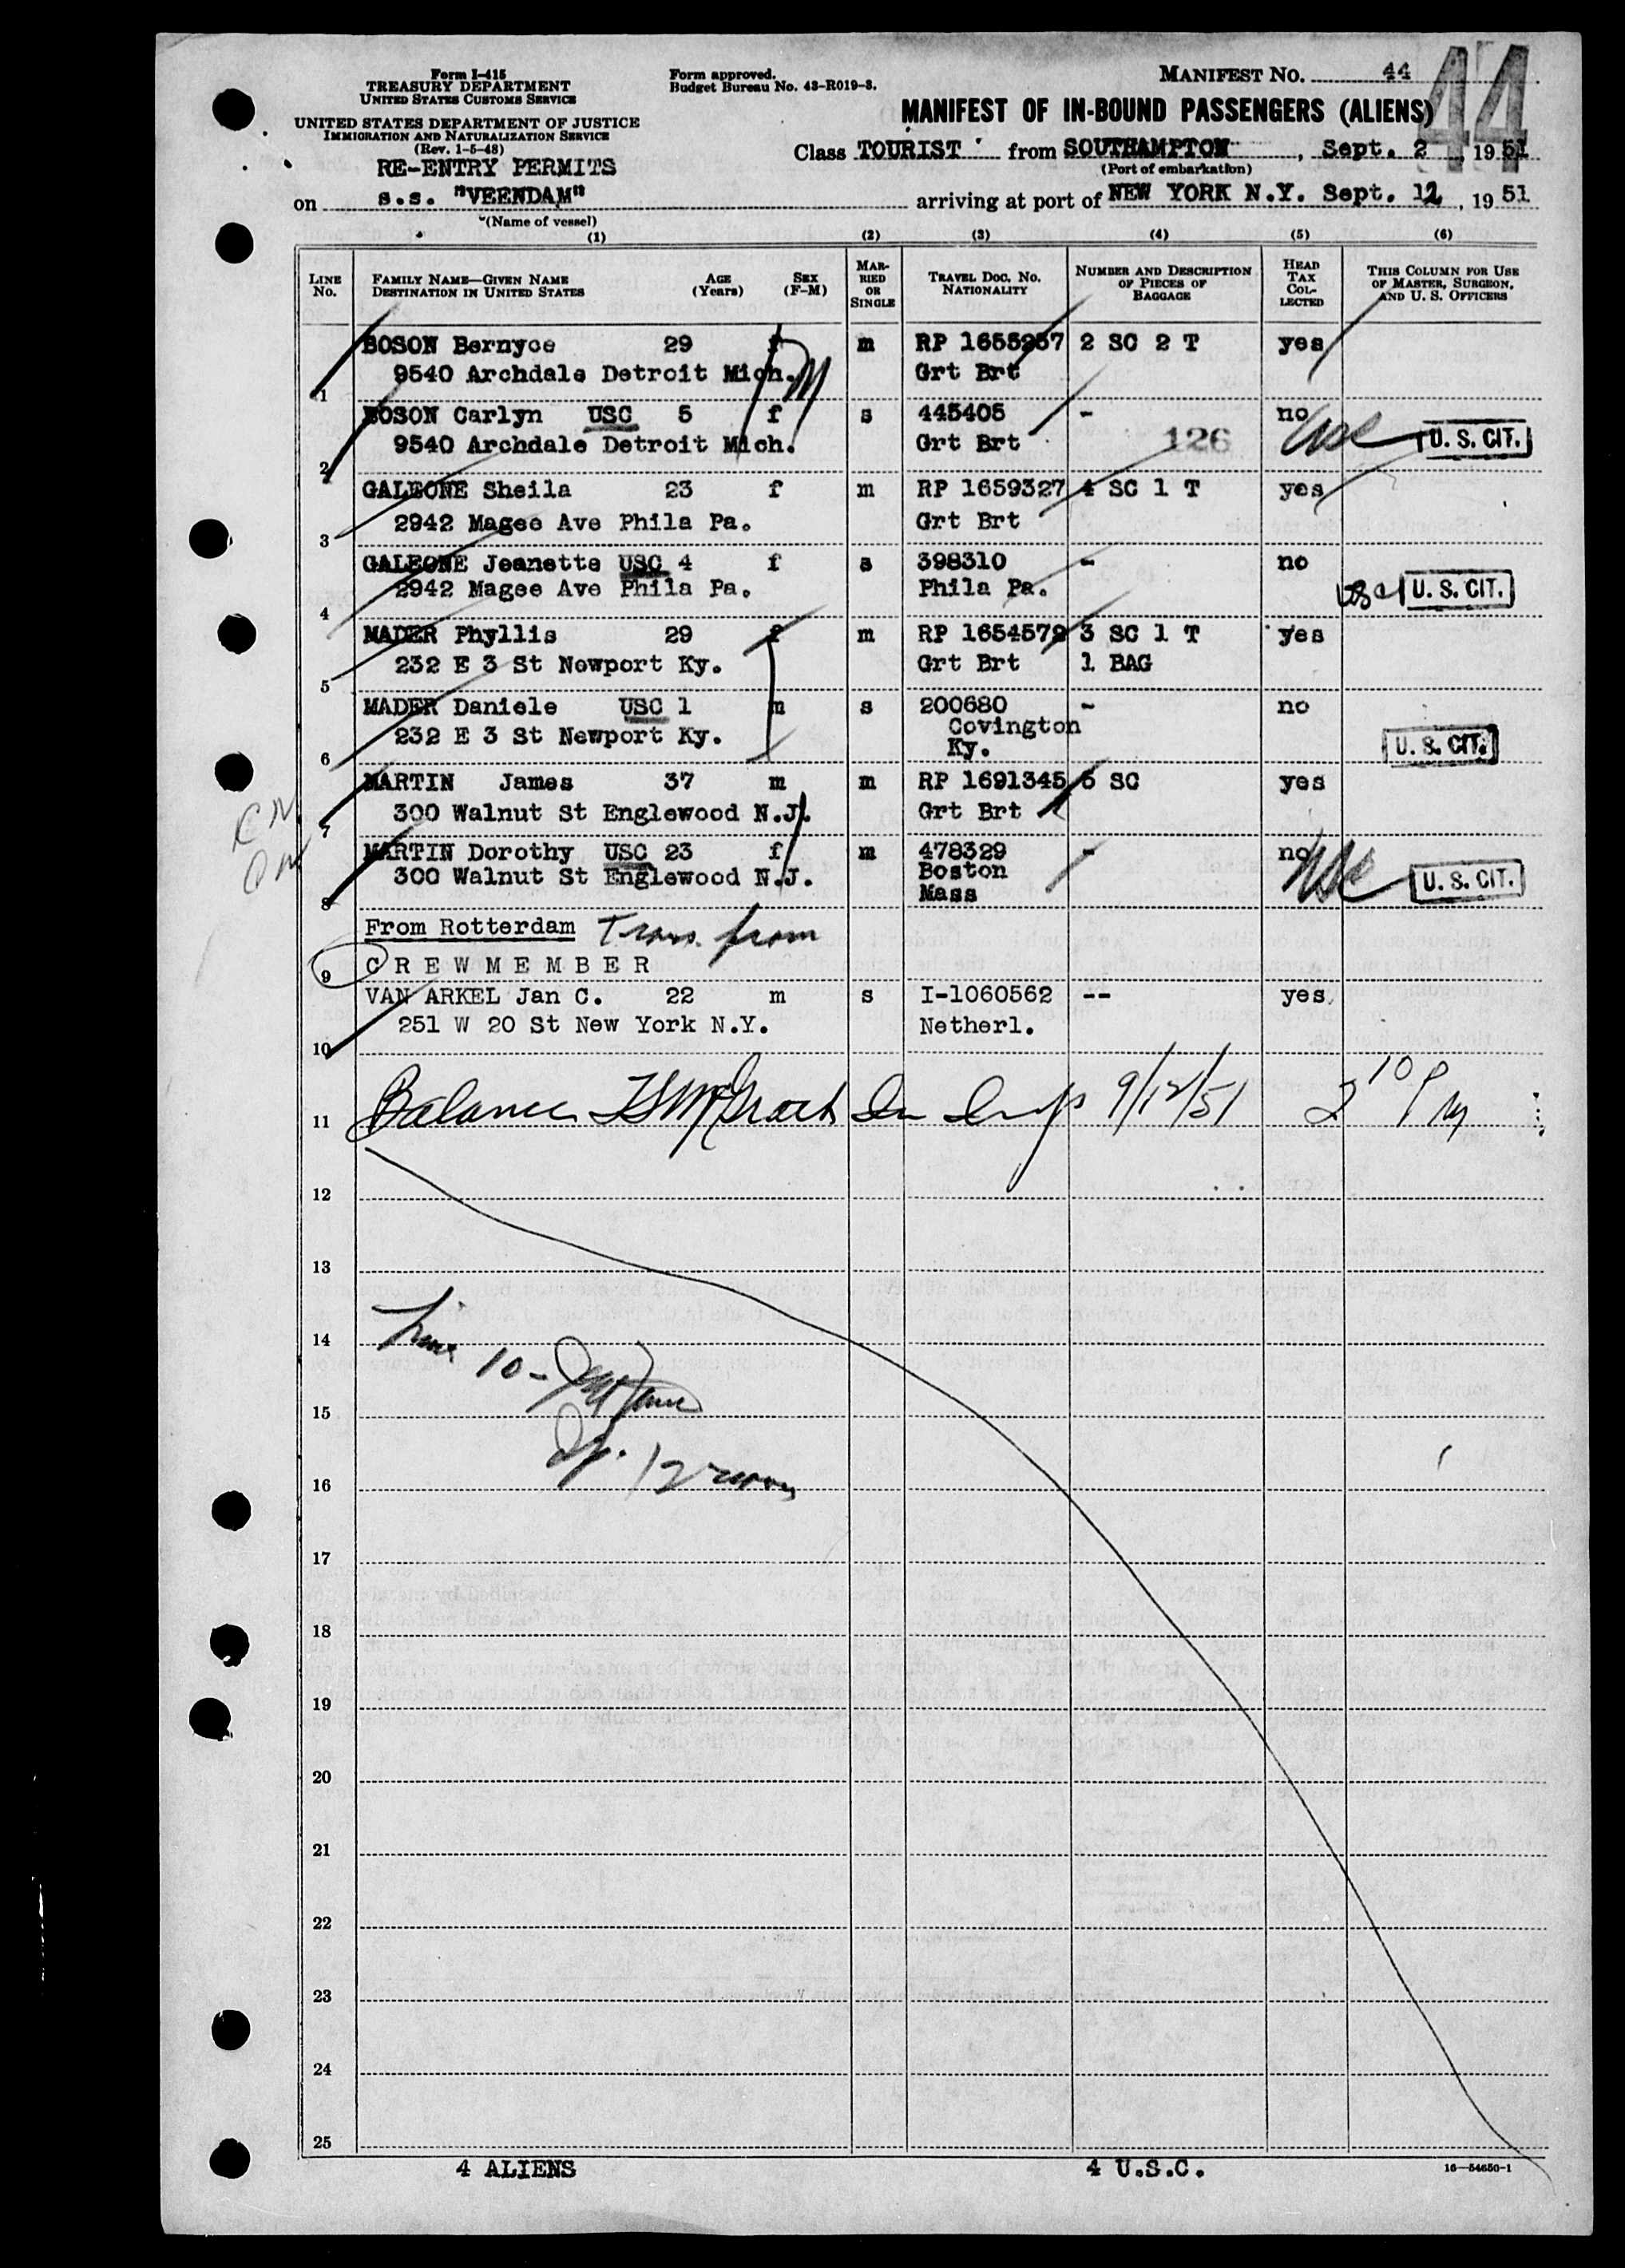 Form I-415
TREASURY DEPARTMENT
UNITED STATES CUSTOMS SERVICE
UNITED STATES DEPARTMENT OF JUSTICE
IMMIGRATION AND NATURALIZATION SERVICE
(Rev. 1-5-48)
RE-ENTRY PERMITS
Form approved.
Budget Bureau No. 43-R019-3.
MANIFEST NO. 44
44
MANIFEST OF IN-BOUND PASSENGERS (ALIENS)
Class TOURIST from SOUTHAMPTON, Sept. 2, 1951
(Port of embarkation)
on s.s. "VEENDAM" arriving at port of NEW YORK N.Y. Sept. 12, 1951
(Name of vessel)
(1) (2) (3) (4) (5) (6)
LINE No. FAMILY NAME—GIVEN NAME DESTINATION IN UNITED STATES AGE (Years) SEX (F-M) MARRIED OR SINGLE TRAVEL DOC. NO. NATIONALITY NUMBER AND DESCRIPTION OF PIECES OF BAGGAGE HEAD TAX COLLECTED THIS COLUMN FOR USE OF MASTER, SURGEON, AND U. S. OFFICERS
BOSON Bernyce 29 f m RP 1655957 2 SC 2 T yes
1 9540 Archdale Detroit Mich. Grt Brt
BOSON Carlyn USC 5 f s 445405 - no
2 9540 Archdale Detroit Mich. Grt Brt 126 usc U. S. CIT.
GALEONE Sheila 23 f m RP 1659327 4 SC 1 T yes
3 2942 Magee Ave Phila Pa. Grt Brt
GALEONE Jeanette USC 4 f s 398310 - no
4 2942 Magee Ave Phila Pa. Phila Pa. usc U. S. CIT.
MADER Phyllis 29 f m RP 1654579 3 SC 1 T yes
5 232 E 3 St Newport Ky. Grt Brt 1 BAG
MADER Daniele USC 1 m s 200680 - no
6 232 E 3 St Newport Ky. Covington Ky. U. S. CIT.
MARTIN James 37 m m RP 1691345 5 SC yes
7 300 Walnut St Englewood N.J. Grt Brt
MARTIN Dorothy USC 23 f m 478329 - no
8 300 Walnut St Englewood N.J. Boston Mass usc U. S. CIT.
From Rotterdam Trans. from
9 CREWMEMBER
VAN ARKEL Jan C. 22 m s I-1060562 -- yes
10 251 W 20 St New York N.Y. Netherl.
11 Balance 9/12/51 2 10 PM
12
13
14 Line 10 -
15
16 12 noon
17
18
19
20
21
22
23
24
25
4 ALIENS 4 U.S.C. 16—54650-1